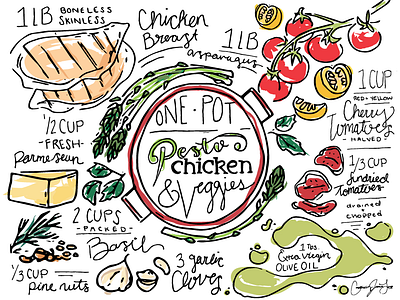 1 LB BONELESS
SKINLESS
Chicken
Breast
1 LB
asparagus
ONE-POT
Pesto
chicken
& Veggies
1 CUP
RED + YELLOW
Cherry
Tomatoes
HALVED
1/2 CUP
-FRESH-
Parmesean
1/3 CUP
sundried
Tomatoes
drained
&
chopped
2 CUPS
PACKED
Basil
1/3 CUP
pine nuts
3 garlic
Cloves
1 Tbs.
Extra Virgin
OLIVE OIL